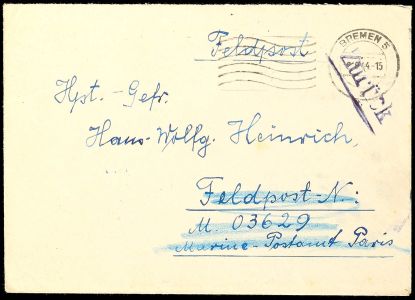 Feldpost
BREMEN 5
Zurück
Hpt.-Gefr.
Hans-Wolfg. Heinrich,
Feldpost-N:
M. 03629
Marine-Postamt Paris